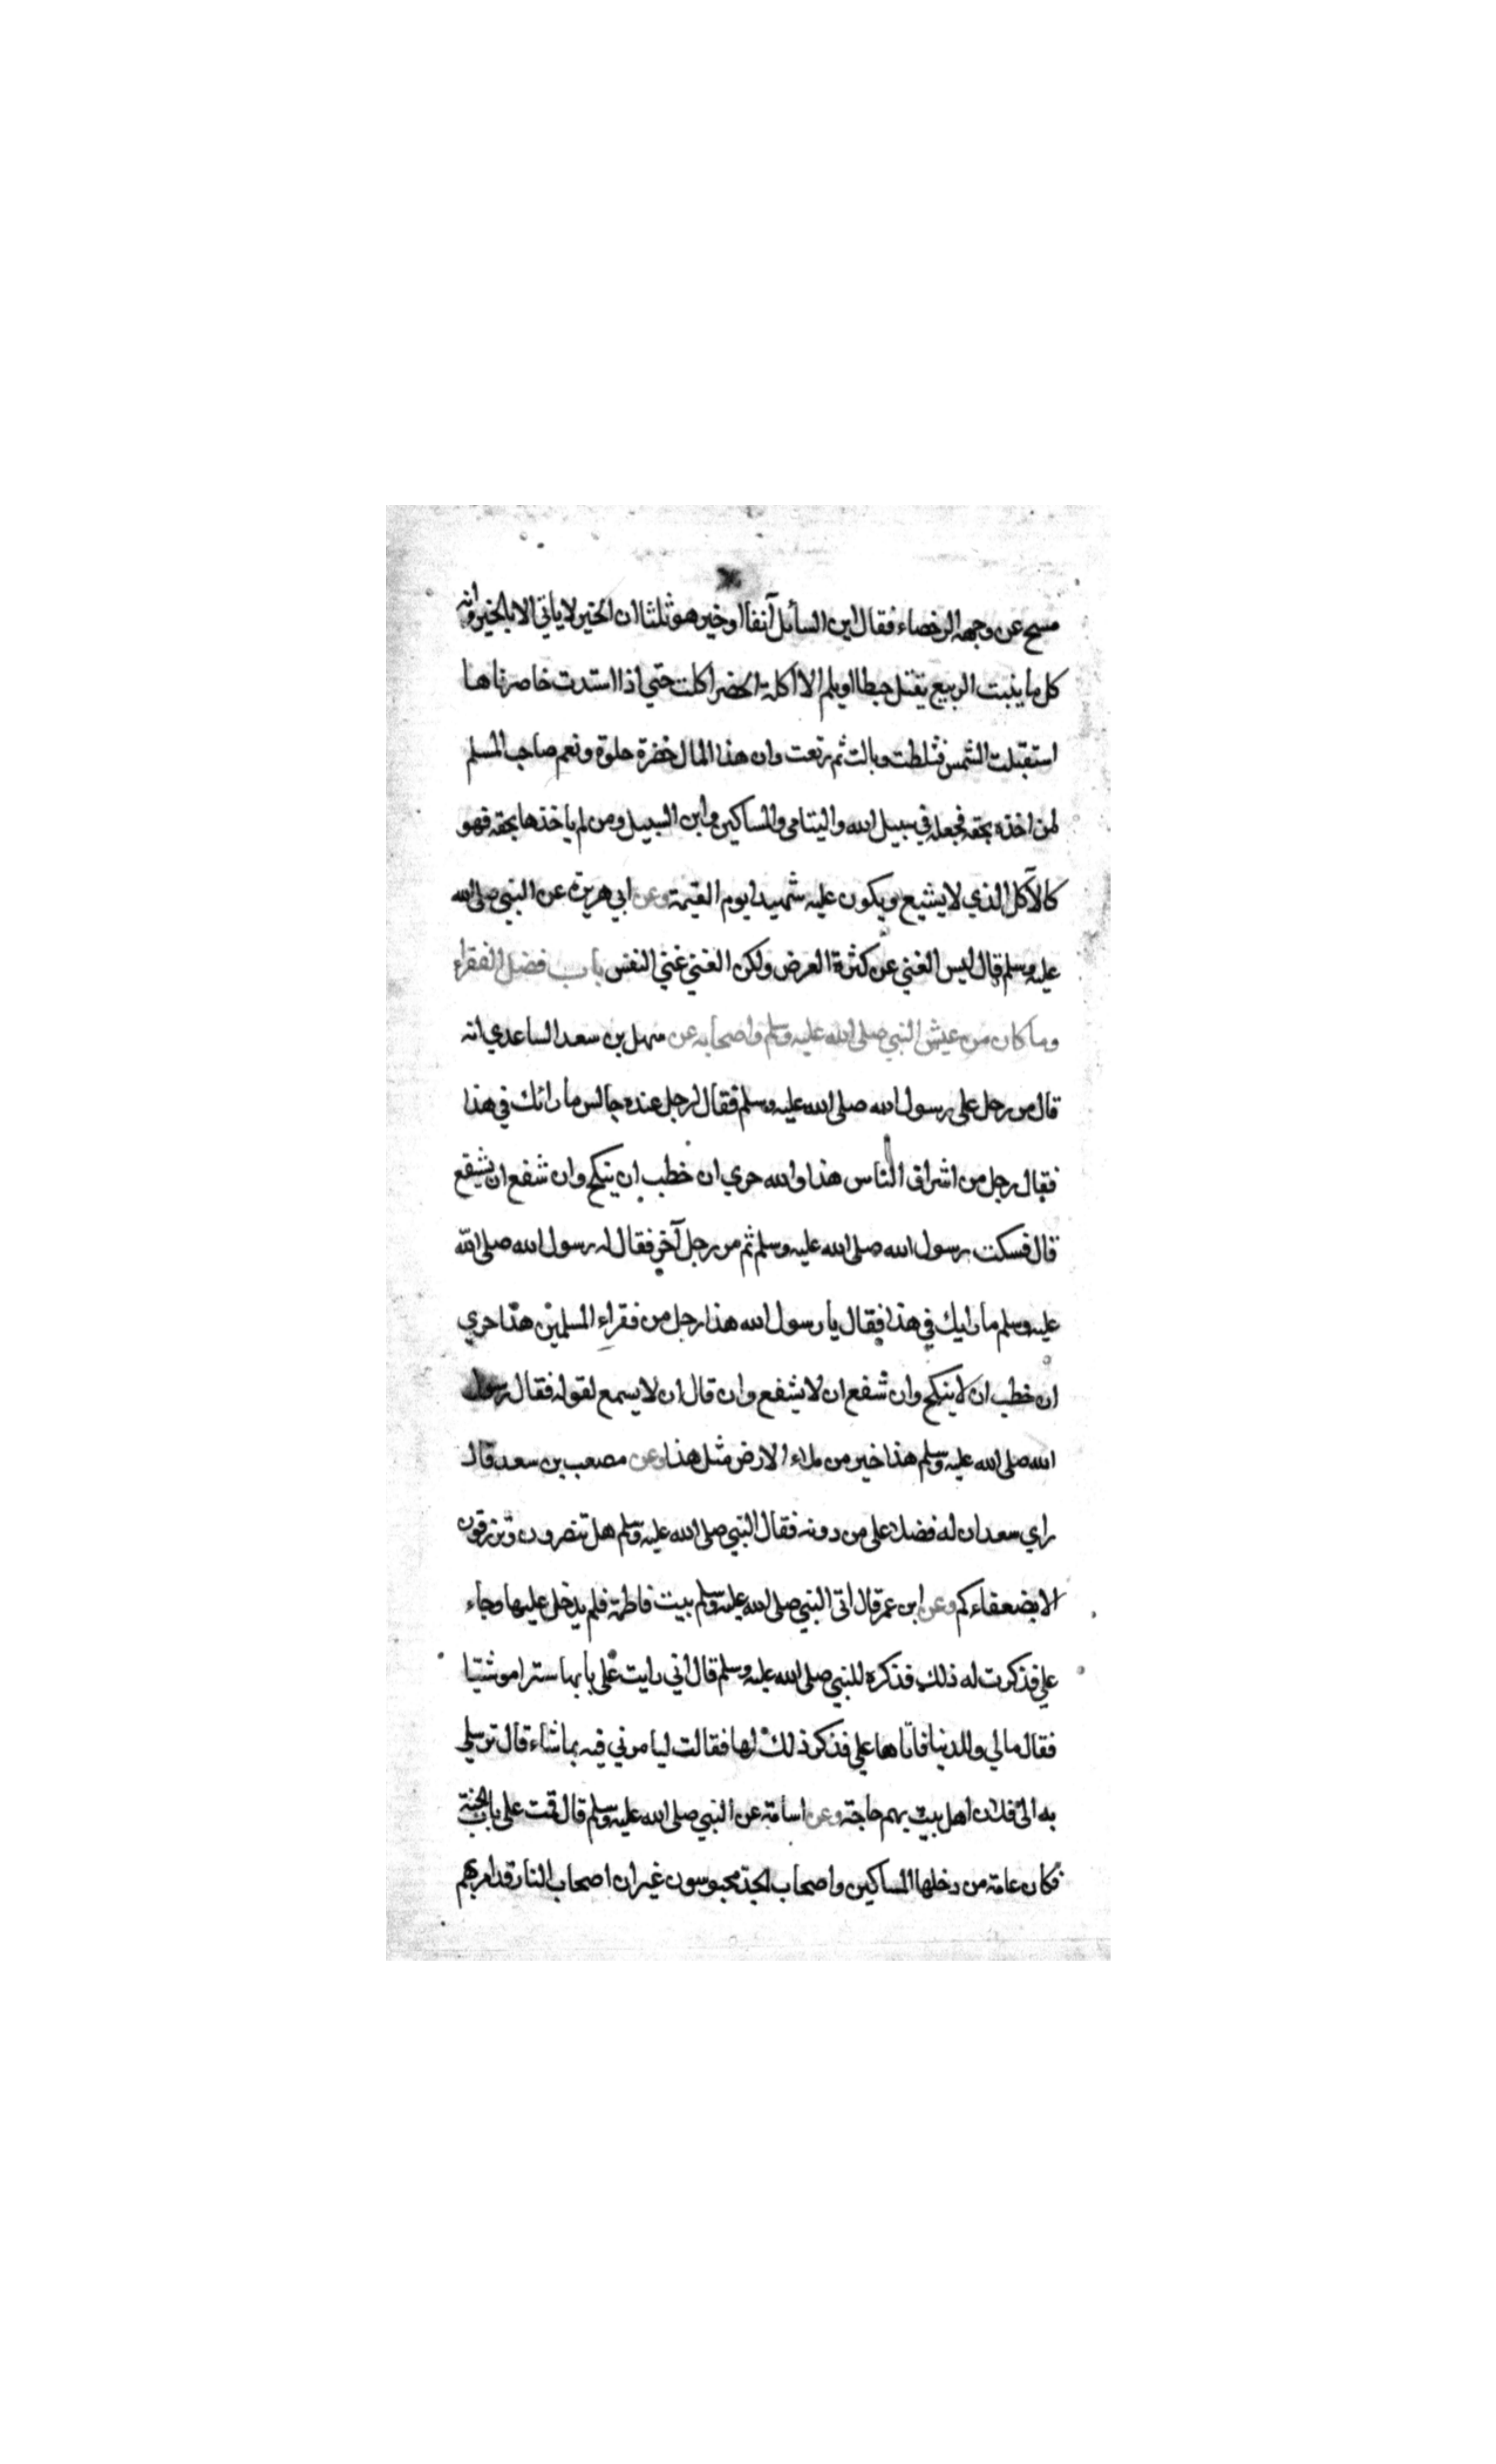 مسح عن وجهه الرخصاء فقال اين السائل آنفا اوخير هو ثلثا ان الخير لا ياتي الا بالخير وانه
كل ما ينبت الربيع يقتل حبطا او يلم الا آكلة الخضر اكلت حتي اذا استدت خاصرتاها
استقبلت الشمس فثلطت وبالت ثم رتعت وان هذا المال خضرة حلوة ونعم صاحب المسلم
لمن اخذه بحقه فجعله في سبيل الله واليتامي والمساكين وابن السبيل ومن لم ياخذها بحقه فهو
كالآكل الذي لا يشبع ويكون عليه شهيدا يوم القيمة وعن ابي هريرة عن النبي صلي الله
عليه وسلم قال ليس الغني عن كثرة العرض ولكن الغني غني النفس باب فضل الفقراء
وما كان من عيش النبي صلي الله عليه وسلم واصحابه عن سهل بن سعد الساعدي انه
قال مر رجل علي رسول الله صلي الله عليه وسلم فقال لرجل عنده جالس ما رائك في هذا
فقال رجل من اشراف الناس هذا والله حري ان خطب ان ينكح وان شفع ان يشفع
قال فسكت رسول الله صلي الله عليه وسلم ثم مر رجل آخر فقال له رسول الله صلي الله
عليه وسلم ما رايك في هذا فقال يا رسول الله هذا رجل من فقراء المسلمين هذا حري
ان خطب ان لا ينكح وان شفع ان لا يشفع وان قال ان لا يسمع لقوله فقال رسول
الله صلي الله عليه وسلم هذا خير من ملاء الارض مثل هذا وعن مصعب بن سعد قال
راي سعد ان له فضلا علي من دونه فقال النبي صلي الله عليه وسلم هل تنصرون وترزقون
الا بضعفاءكم وعن ابن عمر قال اتي النبي صلي الله عليه وسلم بيت فاطمة فلم يدخل عليها وجاء
علي فذكرت له ذلك فذكره للنبي صلي الله عليه وسلم قال اني رايت علي بابها سترا موشيا
فقال مالي وللدنيا فاتاها علي فذكر ذلك لها فقالت ليامرني فيه بما شاء قال ترسلي
به الي فلان اهل بيت بهم حاجة وعن اسامة عن النبي صلي الله عليه وسلم قال قمت علي باب الجنة
فكان عامة من دخلها المساكين واصحاب الجد محبوسون غير ان اصحاب النار قد امر بهم